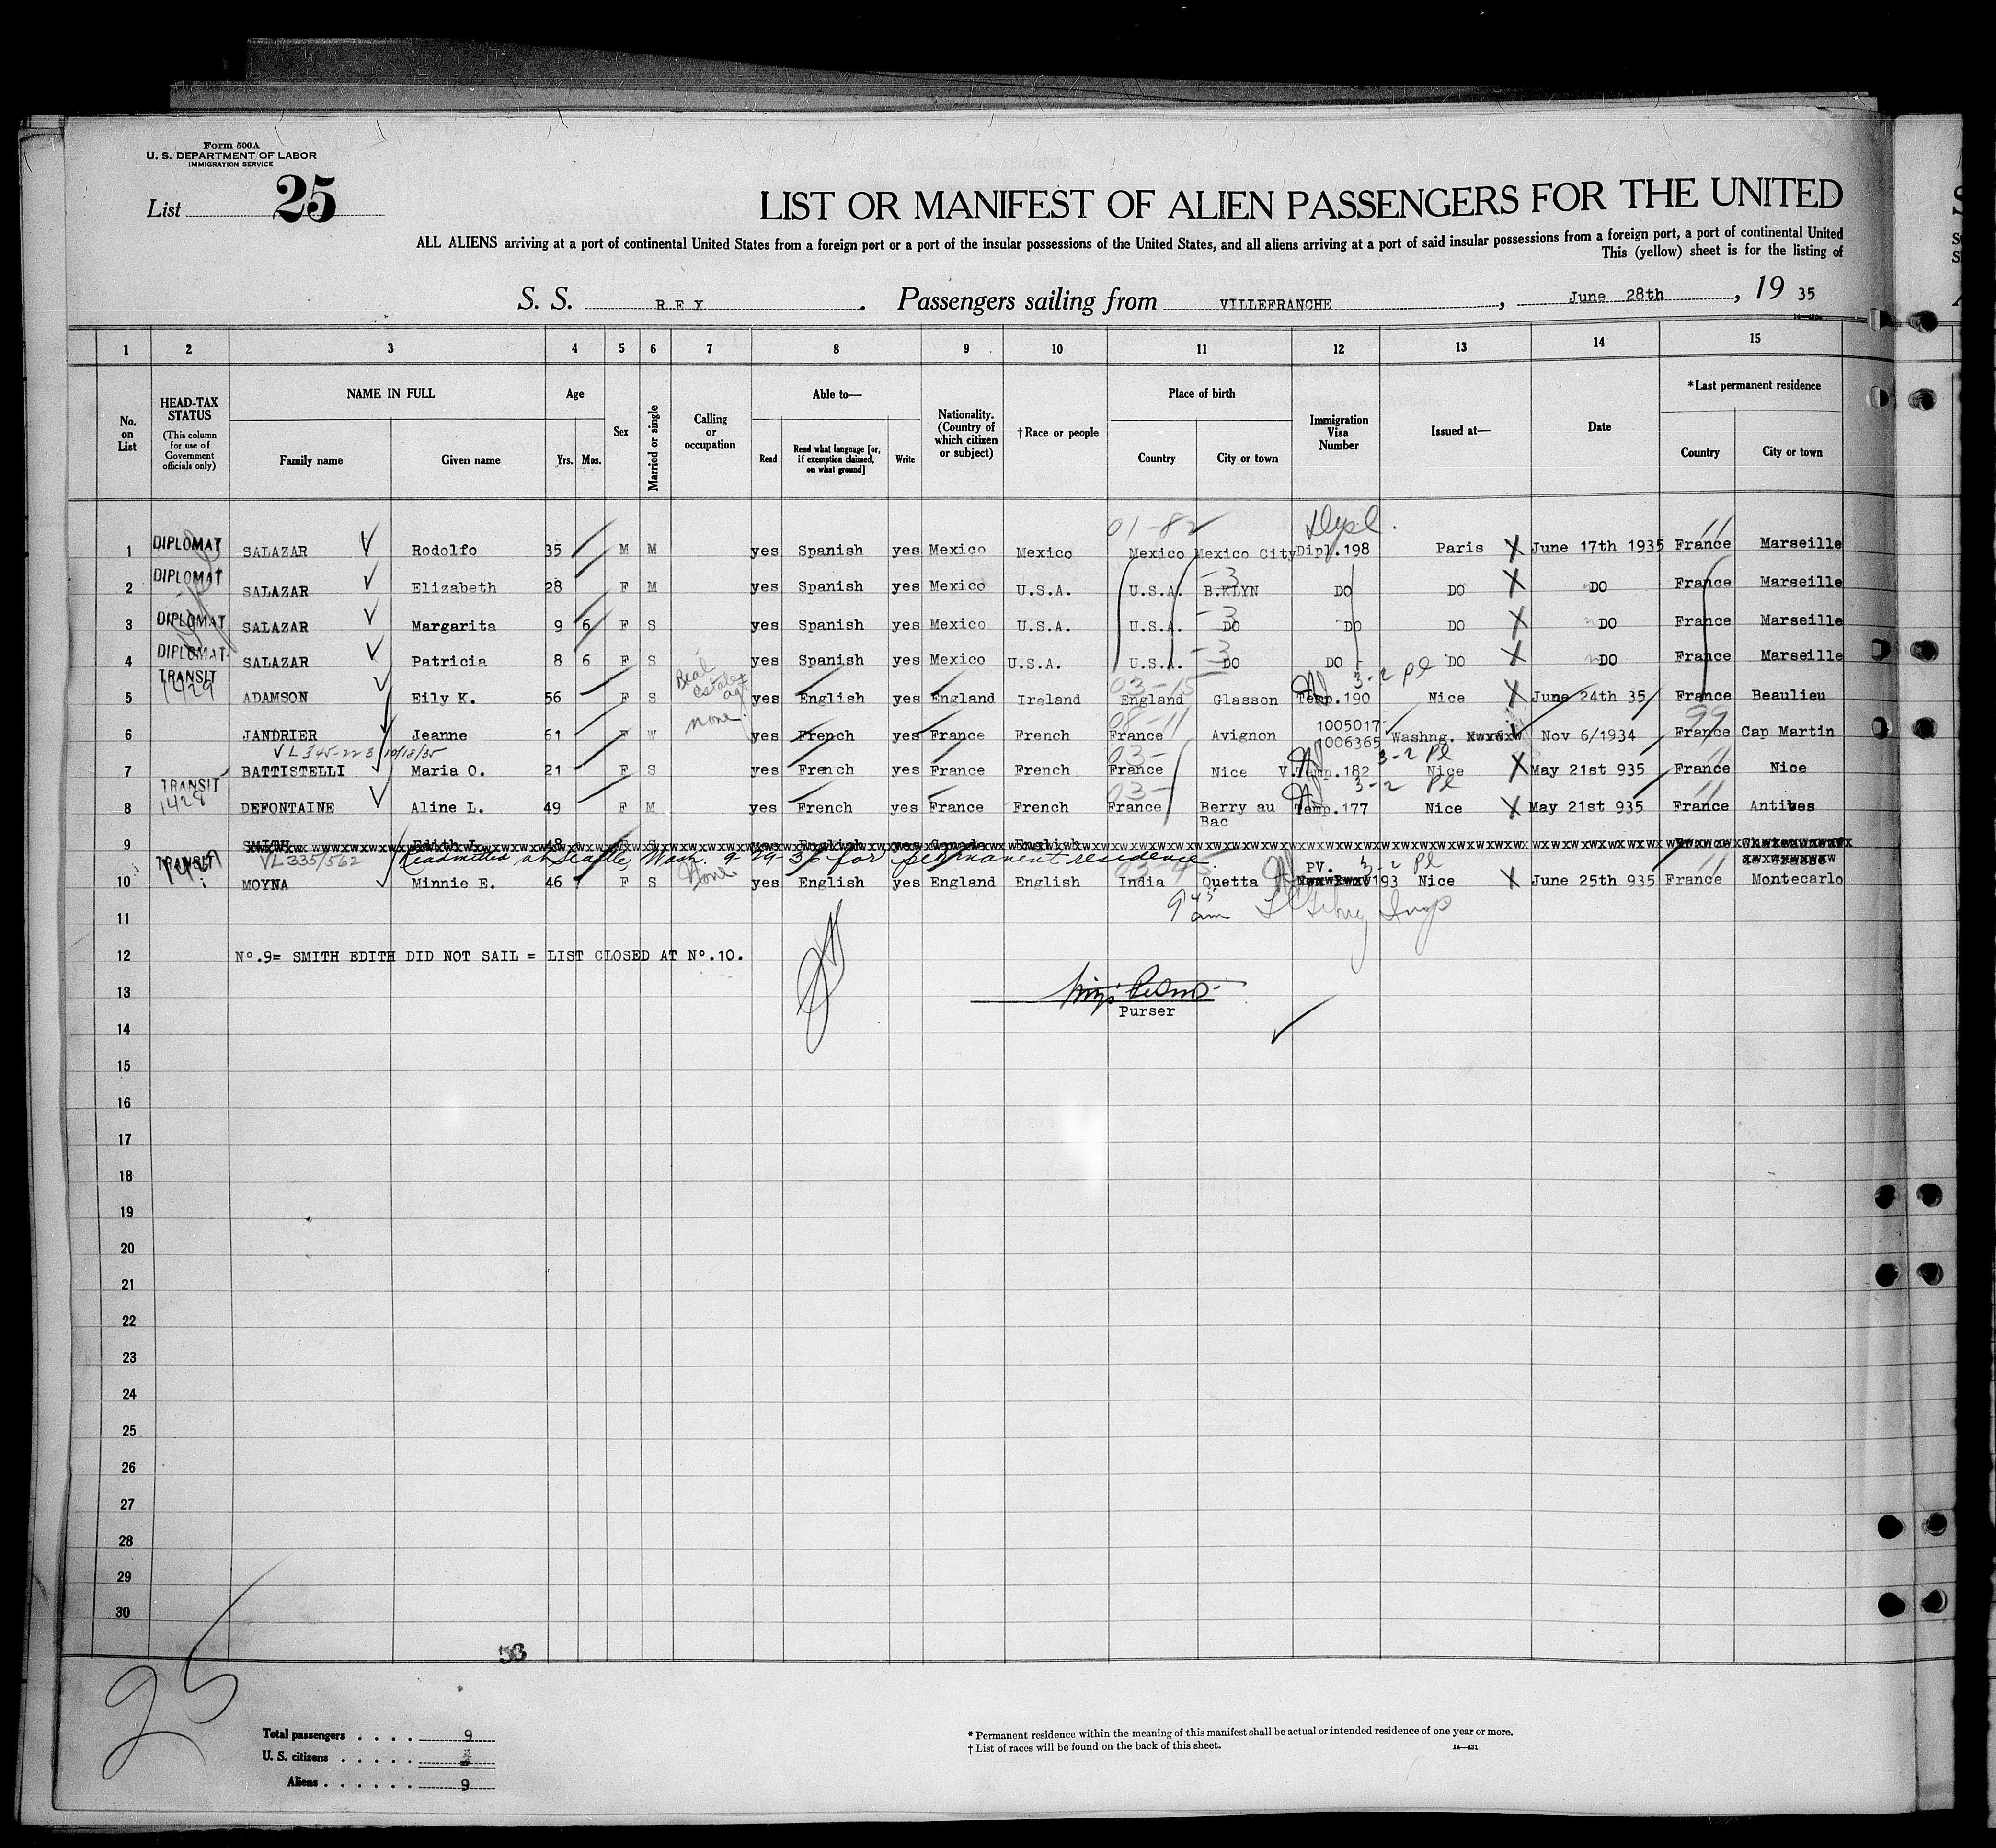 Form 500A
U. S. DEPARTMENT OF LABOR
IMMIGRATION SERVICE
List 25
LIST OR MANIFEST OF ALIEN PASSENGERS FOR THE UNITED
ALL ALIENS arriving at a port of continental United States from a foreign port or a port of the insular possessions of the United States, and all aliens arriving at a port of said insular possessions from a foreign port, a port of continental United
This (yellow) sheet is for the listing of
S. S. REX. Passengers sailing from VILLEFRANCHE, June 28th, 19 35
1 2 3 4 5 6 7 8 9 10 11 12 13 14 15
No. on List
HEAD-TAX STATUS
(This column for use of Government officials only)
NAME IN FULL
Family name Given name
Age
Yrs. Mos.
Sex
Married or single
Calling or occupation
Able to—
Read
Read what language [or, if exemption claimed, on what ground]
Write
Nationality. (Country of which citizen or subject)
†Race or people
Place of birth
Country City or town
Immigration Visa Number
Issued at—
Date
*Last permanent residence
Country City or town
01-82 Dipl. 11
1 DIPLOMAT SALAZAR Rodolfo 35 M M yes Spanish yes Mexico Mexico Mexico Mexico City Dipl.198 Paris June 17th 1935 France Marseille
2 DIPLOMAT SALAZAR Elizabeth 28 F M yes Spanish yes Mexico U.S.A. U.S.A. B.KLYN DO DO DO France Marseille
3 DIPLOMAT SALAZAR Margarita 9 6 F S yes Spanish yes Mexico U.S.A. U.S.A. DO DO DO DO France Marseille
4 DIPLOMAT SALAZAR Patricia 8 6 F S yes Spanish yes Mexico U.S.A. U.S.A. DO DO DO DO France Marseille
TRANSIT 1429 Real estate agt 03-15 3-2 Pl
5 ADAMSON Eily K. 56 F S yes English yes England Ireland England Glasson Temp.190 Nice June 24th 35 France Beaulieu
none 08-11 1005017 99
6 JANDRIER Jeanne 61 F W yes French yes France French France Avignon 1006365 Washng. Nov 6/1934 France Cap Martin
VL 345-223 10/18/35 03- 3-2 Pl 11
7 BATTISTELLI Maria O. 21 F S yes French yes France French France Nice V.Temp.182 Nice May 21st 935 France Nice
TRANSIT 1428 03- 3-2 Pl 11
8 DEFONTAINE Aline L. 49 F M yes French yes France French France Berry au Bac Temp.177 Nice May 21st 935 France Antibes
9 SMITH Edith J. 48 yes English yes Canada English
TRANSIT VL 335/562 Readmitted at Seattle, Wash. 9-29-36 for permanent residence.
None 03-45 PV. 3-2 Pl 11
10 MOYNA Minnie E. 46 F S yes English yes England English India Quetta 193 Nice June 25th 935 France Montecarlo
11 9 45 am Insp
12 Nº.9= SMITH EDITH DID NOT SAIL = LIST CLOSED AT Nº.10.
13
Purser
14
15
16
17
18
19
20
21
22
23
24
25
26
27
28
29
30
53
25
Total passengers . . . . 9
U. S. citizens . . . . .
Aliens . . . . . . 9
* Permanent residence within the meaning of this manifest shall be actual or intended residence of one year or more.
† List of races will be found on the back of this sheet.
14—431